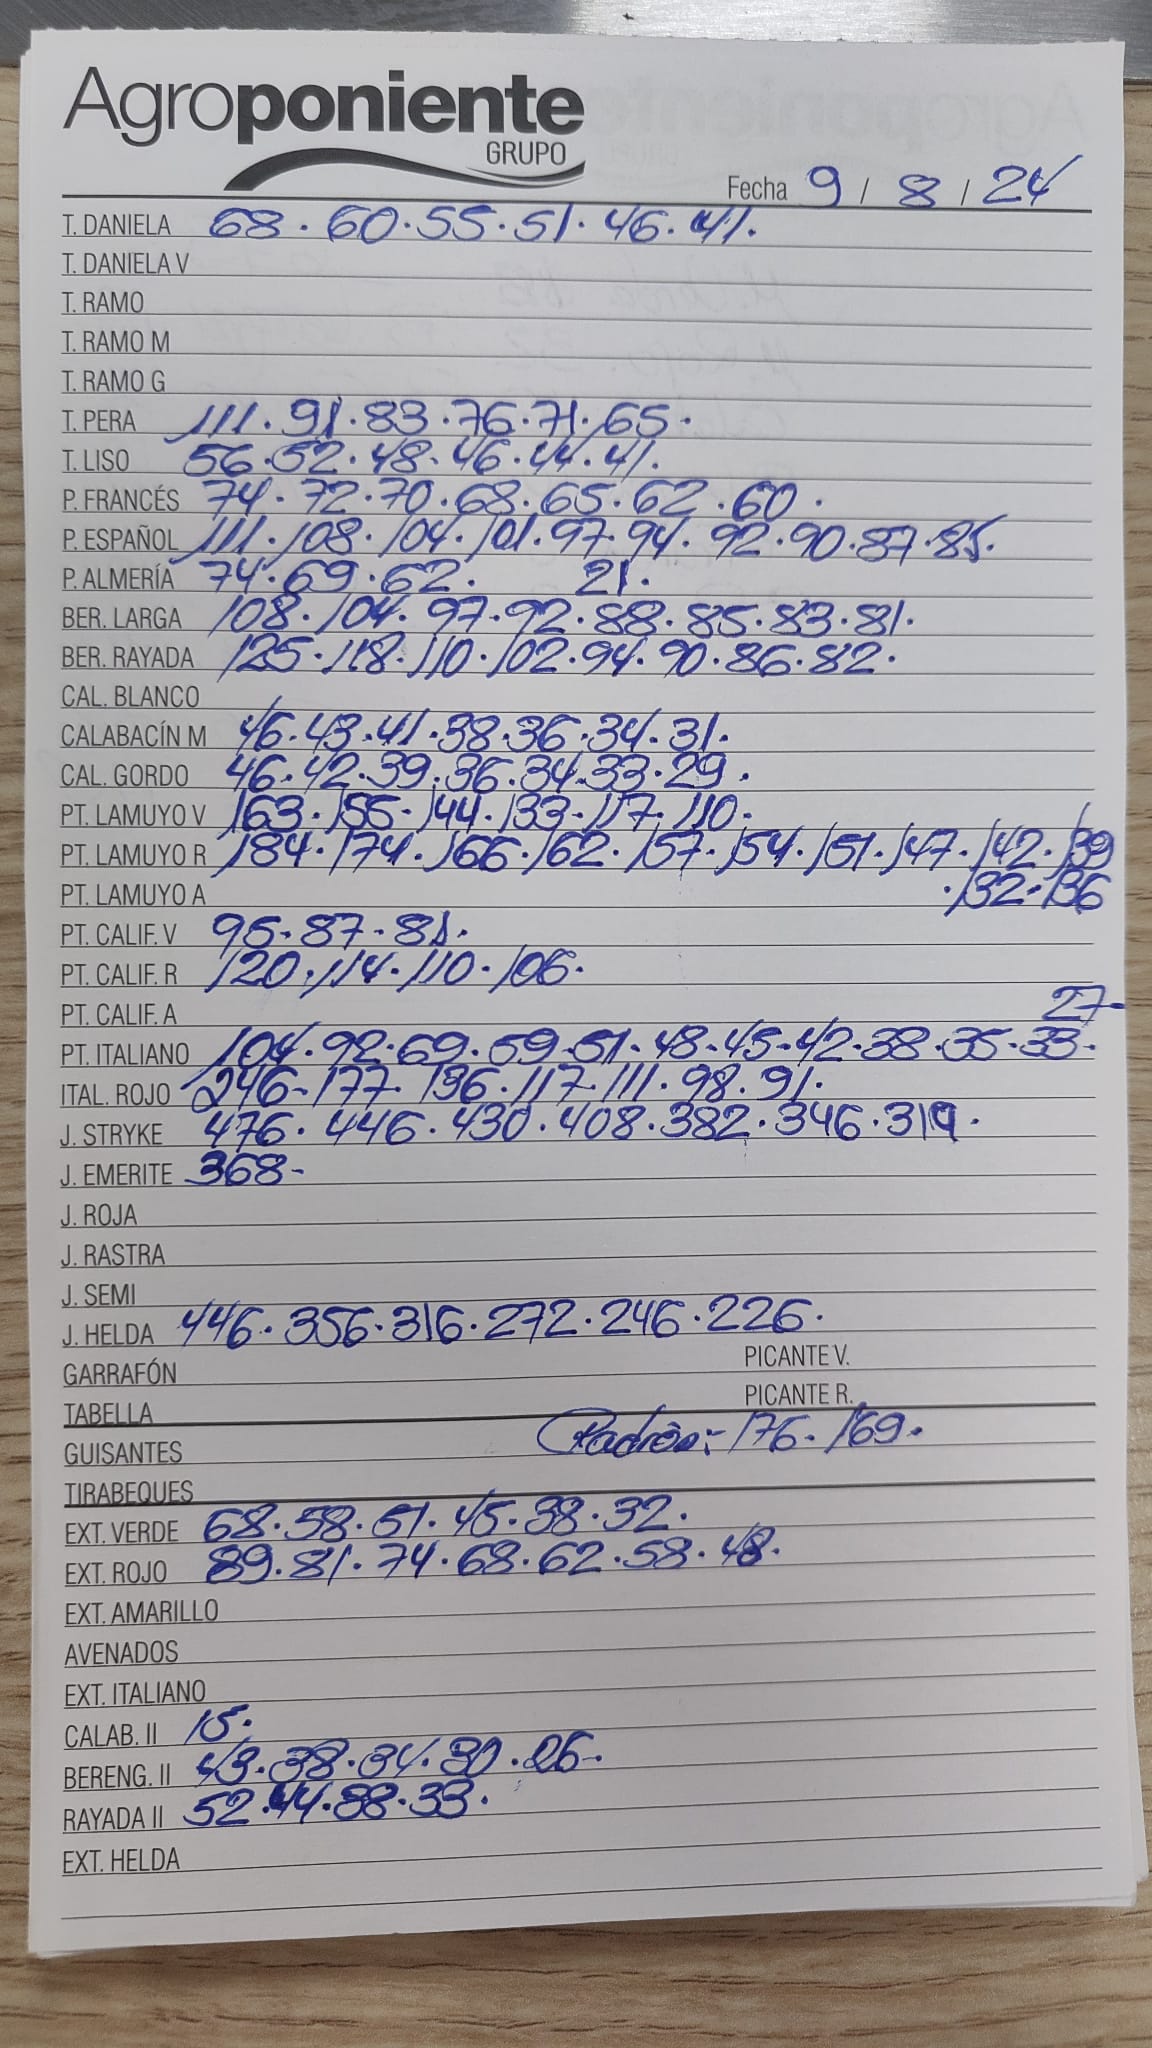 Agroponiente
GRUPO
Fecha 9 / 8 / 24
T. DANIELA 68 . 60 . 55 . 51 . 46 . 41.
T. DANIELA V
T. RAMO
T. RAMO M
T. RAMO G
T. PERA 111 . 91 . 83 . 76 . 71 . 65 .
T. LISO 56 . 52 . 48 . 46 . 44 . 41.
P. FRANCÉS 74 . 72 . 70 . 68 . 65 . 62 . 60 .
P. ESPAÑOL 111 . 108 . 104 . 101 . 97 . 94 . 92 . 90 . 87 . 85.
P. ALMERÍA 74 . 69 . 62 . 21 .
BER. LARGA 108 . 104 . 97 . 92 . 88 . 85 . 83 . 81.
BER. RAYADA 125 . 118 . 110 . 102 . 94 . 90 . 86 . 82 .
CAL. BLANCO
CALABACÍN M 46 . 43 . 41 . 38 . 36 . 34 . 31.
CAL. GORDO 46 . 42 . 39 . 36 . 34 . 33 . 29 .
PT. LAMUYO V 163 . 155 . 144 . 133 . 117 . 110 .
PT. LAMUYO R 184 . 174 . 166 . 162 . 157 . 154 . 151 . 147 . 142 . 139
PT. LAMUYO A . 132 - 136
PT. CALIF. V 95 . 87 . 81.
PT. CALIF. R 120 . 114 . 110 . 106 .
PT. CALIF. A 27-
PT. ITALIANO 104 . 92 . 69 . 59 . 51 . 48 . 45 . 42 . 38 . 35 . 33 .
ITAL. ROJO 246 - 177 . 136 . 117 . 111 . 98 . 91.
J. STRYKE 476 . 446 . 430 . 408 . 382 . 346 . 319 .
J. EMERITE 368 -
J. ROJA
J. RASTRA
J. SEMI
J. HELDA 446 . 356 . 316 . 272 . 246 . 226 .
GARRAFÓN PICANTE V.
TABELLA PICANTE R.
GUISANTES Padrón: 176 . 169 .
TIRABEQUES
EXT. VERDE 68 . 58 . 51 . 45 . 38 . 32 .
EXT. ROJO 89 . 81 . 74 . 68 . 62 . 58 . 48 .
EXT. AMARILLO
AVENADOS
EXT. ITALIANO
CALAB. II 15 .
BERENG. II 43 . 38 . 34 . 30 . 26 .
RAYADA II 52 . 44 . 38 . 33 .
EXT. HELDA